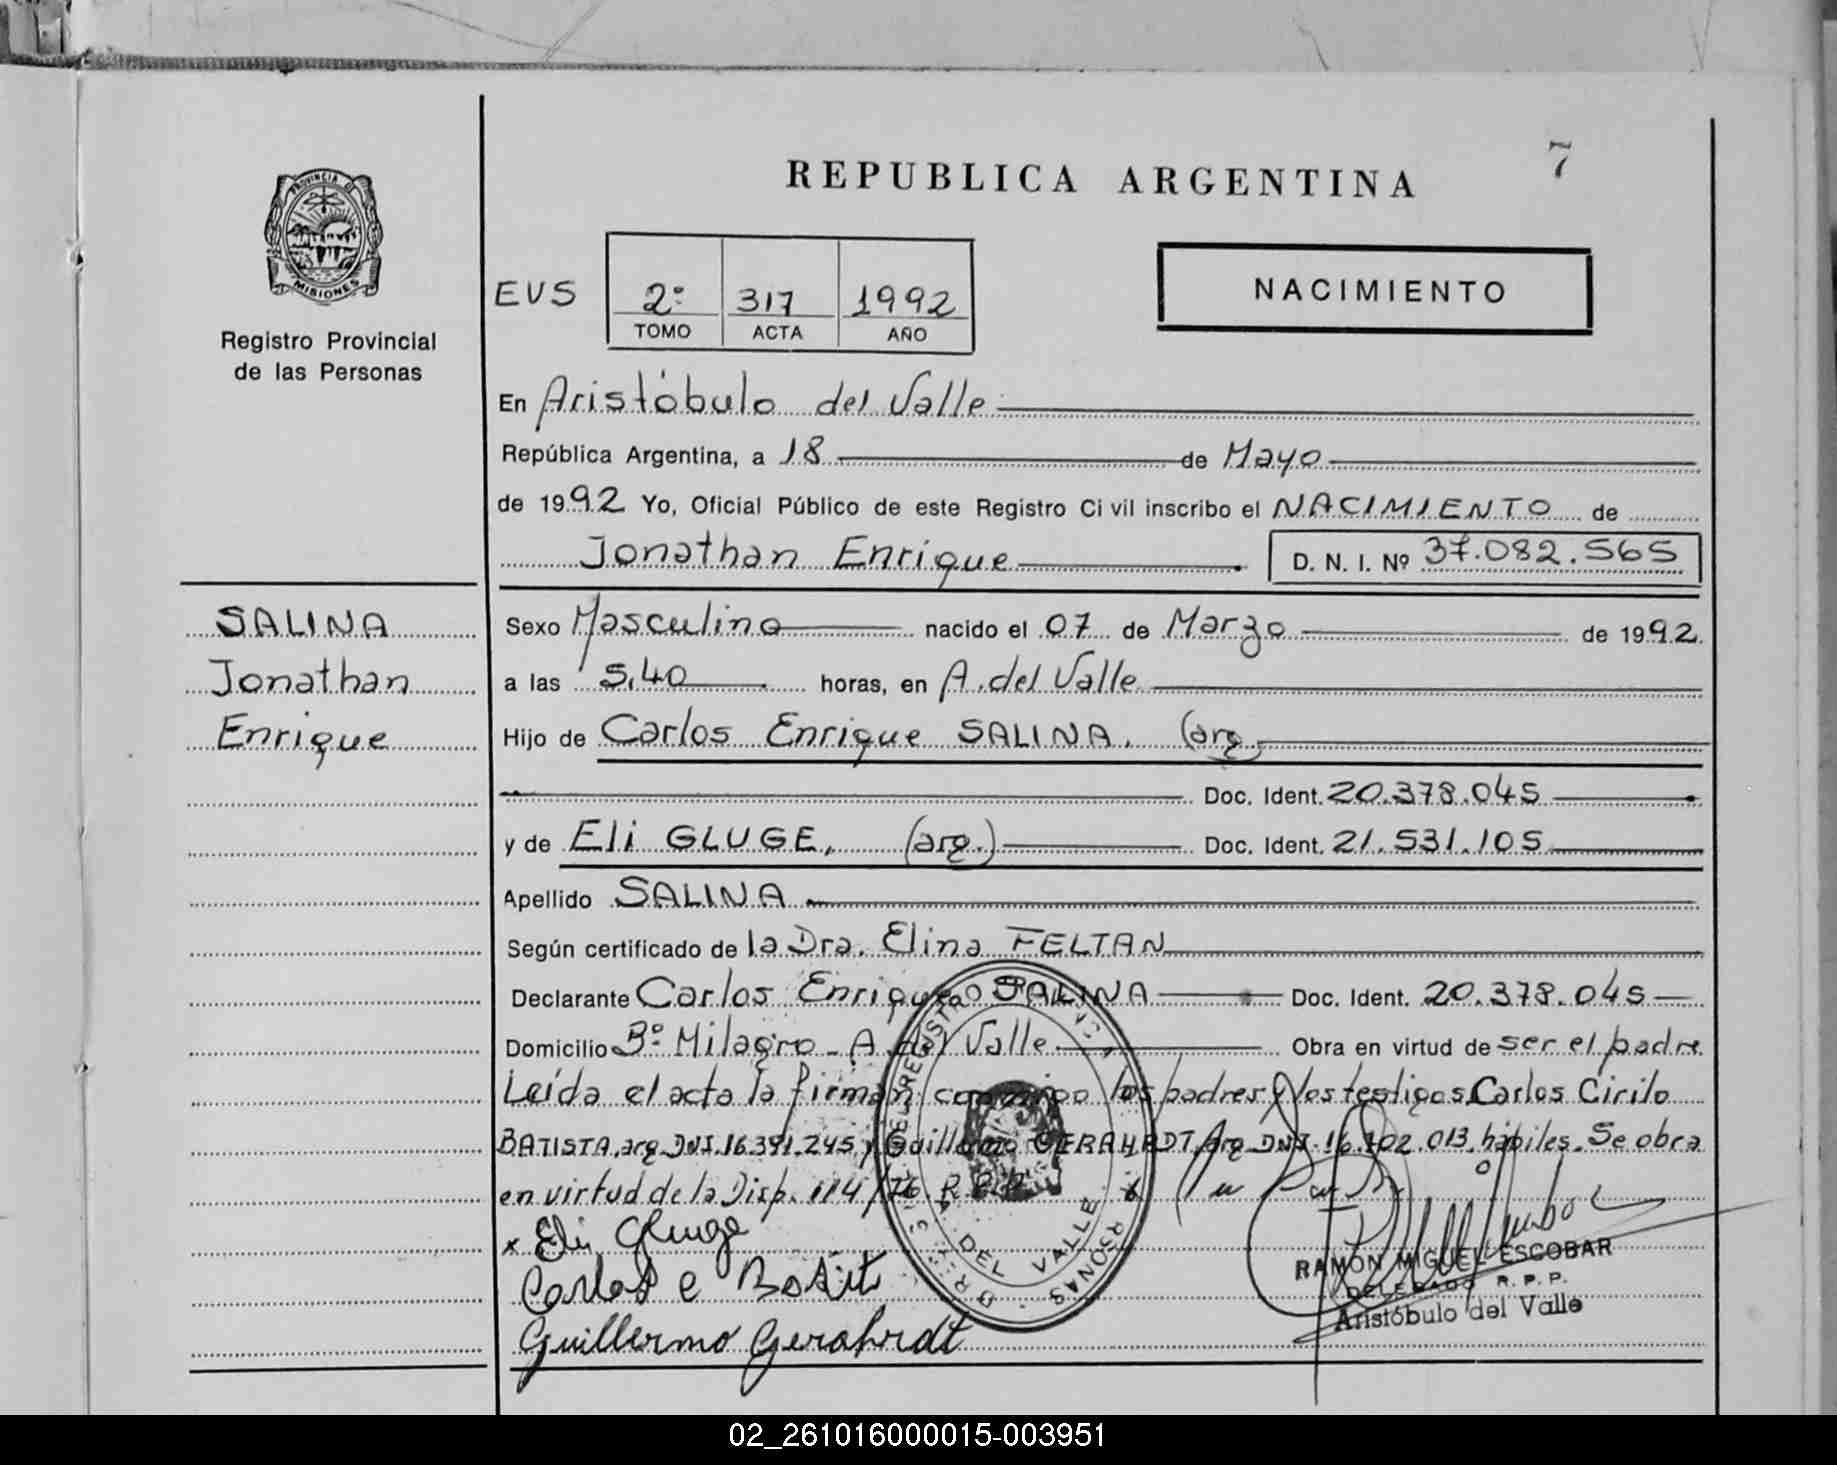 REPUBLICA ARGENTINA
7
PROVINCIA DE
MISIONES
Registro Provincial
de las Personas
EVS
2º 317 1992
TOMO ACTA AÑO
NACIMIENTO
En Aristóbulo del Valle
República Argentina, a 18 de Mayo
de 1992 Yo, Oficial Público de este Registro Civil inscribo el NACIMIENTO de
Jonathan Enrique D. N. I. Nº 37.082.565
SALINA
Jonathan
Enrique
Sexo Masculino nacido el 07 de Marzo de 1992.
a las 5,40 horas, en A. del Valle
Hijo de Carlos Enrique SALINA. (arg.
Doc. Ident. 20.378.045
y de Eli GLUGE, (arg.) Doc. Ident. 21.531.105
Apellido SALINA
Según certificado de la Dra. Elina FELTAN
Declarante Carlos Enrique SALINA Doc. Ident. 20.378.045
Domicilio Bº Milagro - A. del Valle Obra en virtud de ser el padre
Leída el acta la firman conmigo los padres y los testigos Carlos Cirilo
BATISTA, arg. DNI. 16.391.245 y Guillermo GERAHRDT, arg. DNI. 16.702.013, hábiles. Se obra
en virtud de la Disp. 114/76 R.
x Eli Gluge
Carlos c Batit
Guillermo Gerahrdt
DEL VALLE
RAMON MIGUEL ESCOBAR
DELEGADO R. P. P.
Aristóbulo del Valle
02_261016000015-003951